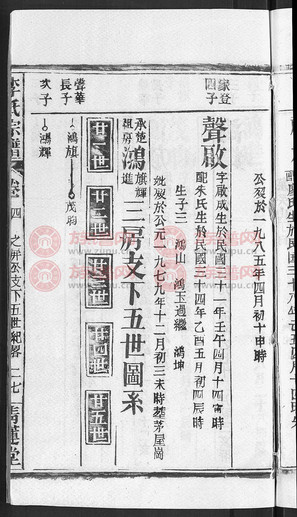 公歿於一九八五年四月初十申時
家登四子
聲啟
字啟成生於民國三十一年壬午四月十四寅時
配朱氏生於民國三十四年乙酉五月初四辰時
生子三 鴻山 鴻玉過繼 鴻坤
妣歿於公元一九七九年十二月初三未時葬茅屋崗
鴻旗輝進二房支下五世圖系
廿一世
廿二世
廿三世
廿四世
廿五世
聲華
長子 鴻旗
次子 鴻輝
李氏宗譜
卷四
之屏公支下五世紀畧
二七
青蓮堂